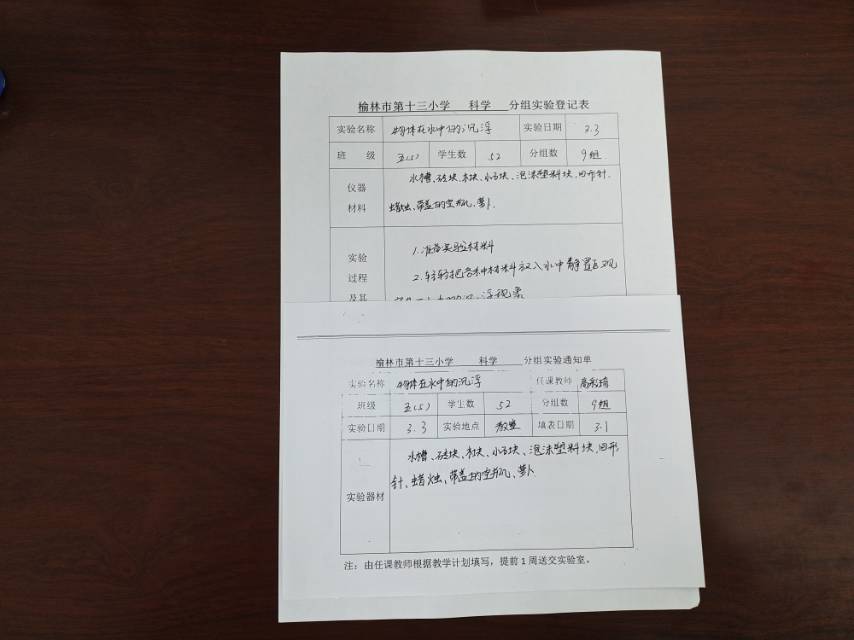 榆林市第十三小学 科学 分组实验登记表
实验名称 物体在水中的沉浮 实验日期 3.3
班 级 五(5) 学生数 52 分组数 9组
仪器 水槽、砖块、木块、小石块、泡沫塑料块、回形针、
材料 蜡烛、带盖的空瓶、萝卜.
实验 1.准备实验材料
过程 2.轻轻把各种材料放入水中静置后观
及其
榆林市第十三小学 科学 分组实验通知单
实验名称 物体在水中的沉浮 任课教师
班级 五(5) 学生数 52 分组数 9组
实验日期 3.3 实验地点 教室 填表日期 3.1
水槽、砖块、木块、小石块、泡沫塑料块、回形
针、蜡烛、带盖的空瓶、萝卜
实验器材
注:由任课教师根据教学计划填写,提前1周送交实验室。